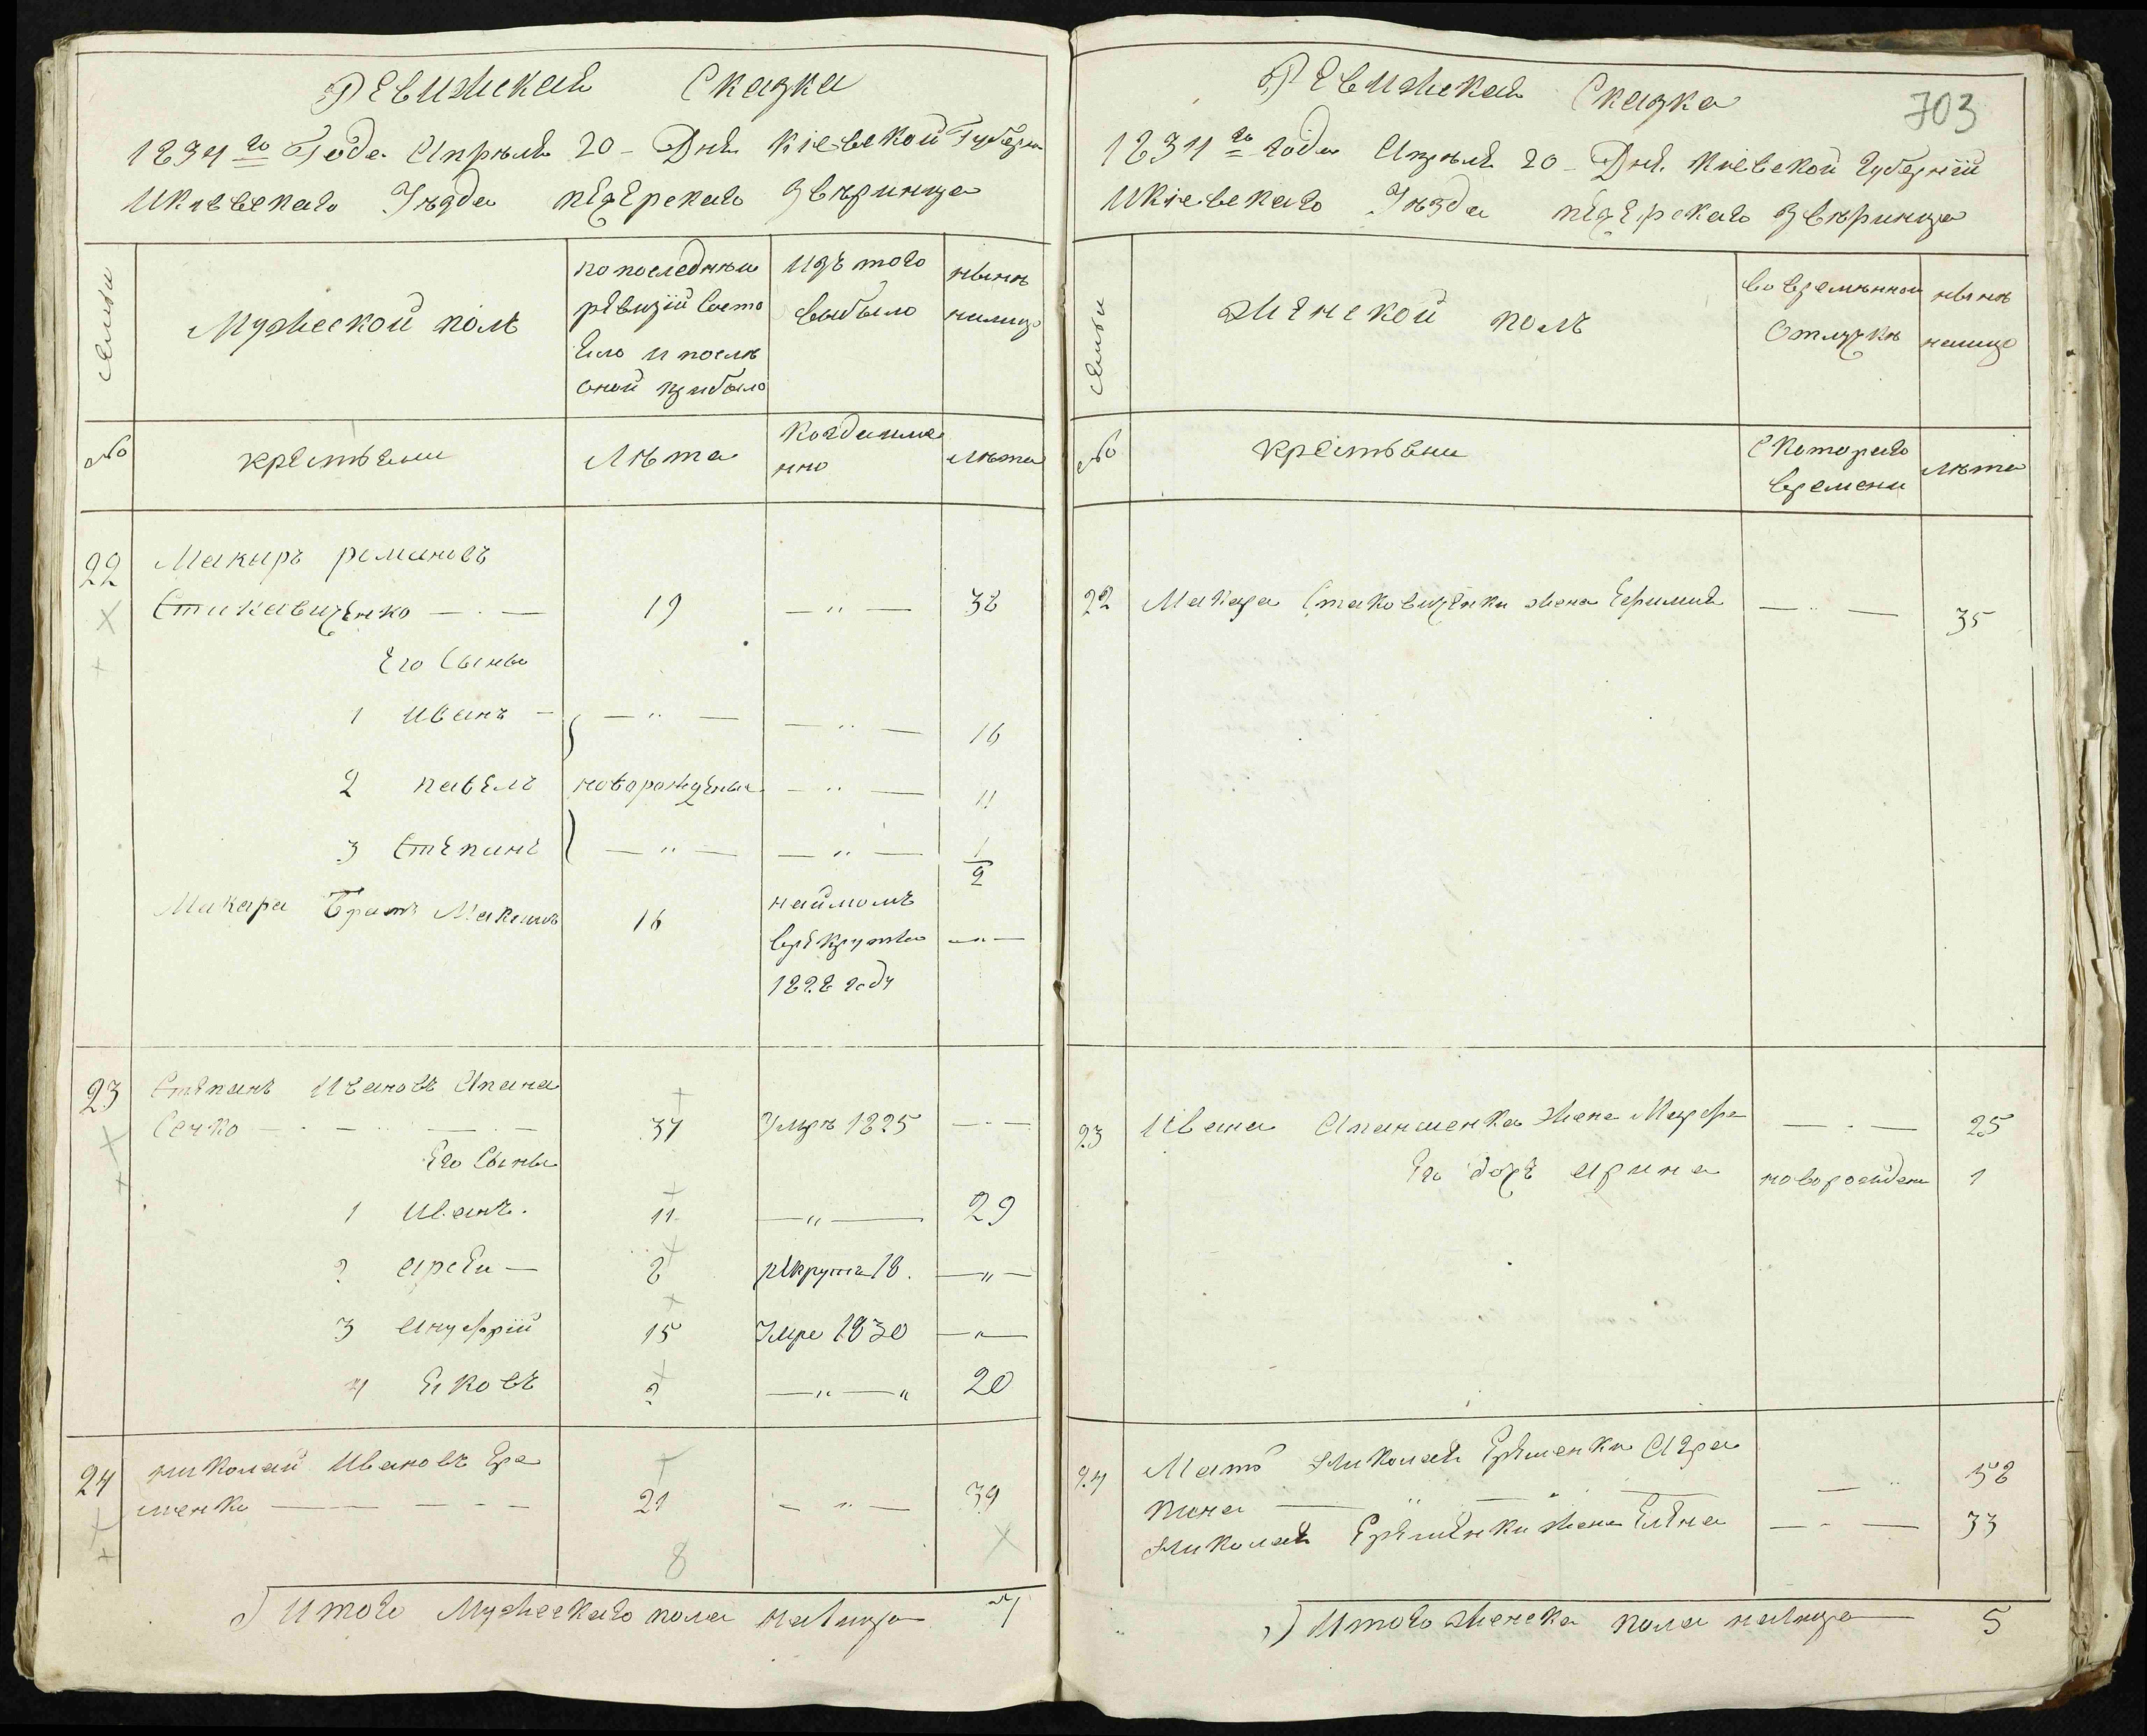 Ревижская Сказка
1834го Года Апреля 20 - Дня Кіевской Губерн
Икіевскаго Уезда печерскаго Звѣринца
семьи
Мужеской полъ
по последней
ревизіи состо
яло и после
оной прибыло
изъ того
выбыло
нынѣ
налицо
№
крестьяни
Лѣта
Когда имя
нно
Лѣта
22 Макаръ романовъ
Стаковиченко — . — 19 — " — 38
Его Сыны
1 Иванъ — — " — — " — 16
2 павелъ новорожденые — " — 11
3 Степанъ — " — — " — 1/2
Макара Братъ Максимъ 16 наймомъ
врекруты — " —
1828 году
23 Степанъ Ивановъ Апана
Сенко — . — . — 37 Умре 1825 — . —
Его Сыны
1 Иванъ. 11 — " — 29
2 арсѣи — 8 рекрутъ 18. — " —
3 ануфрій 15 Умре 1830 — " —
4 яковъ 2 — " — " 20
24 николай Ивановъ Ере
менко — — — — — 21 — " — 39
8
Итого Мужескаго пола налицо 7
Ревижская Сказка
703
1834го года Апреля 20 - Дня. Кіевской Губерніи
Икіевскаго Уезда печерскаго Звѣринца
семьи
Женской полъ
во временной
Отлучке
нынѣ
налицо
№
крестьяни
Скотораго
времени
лѣта
22 Макара Стаковиченки жена Ефимия — " — 35
23 Ивана Апанасенка жена Марфа — . — 25
Его дочь арина новорожден 1
24 Мать Николая Еременки Агра
пина — " — " — — " 58
Николая Еременки жена Елена — - — 33
Итого женска пола налицо — 5